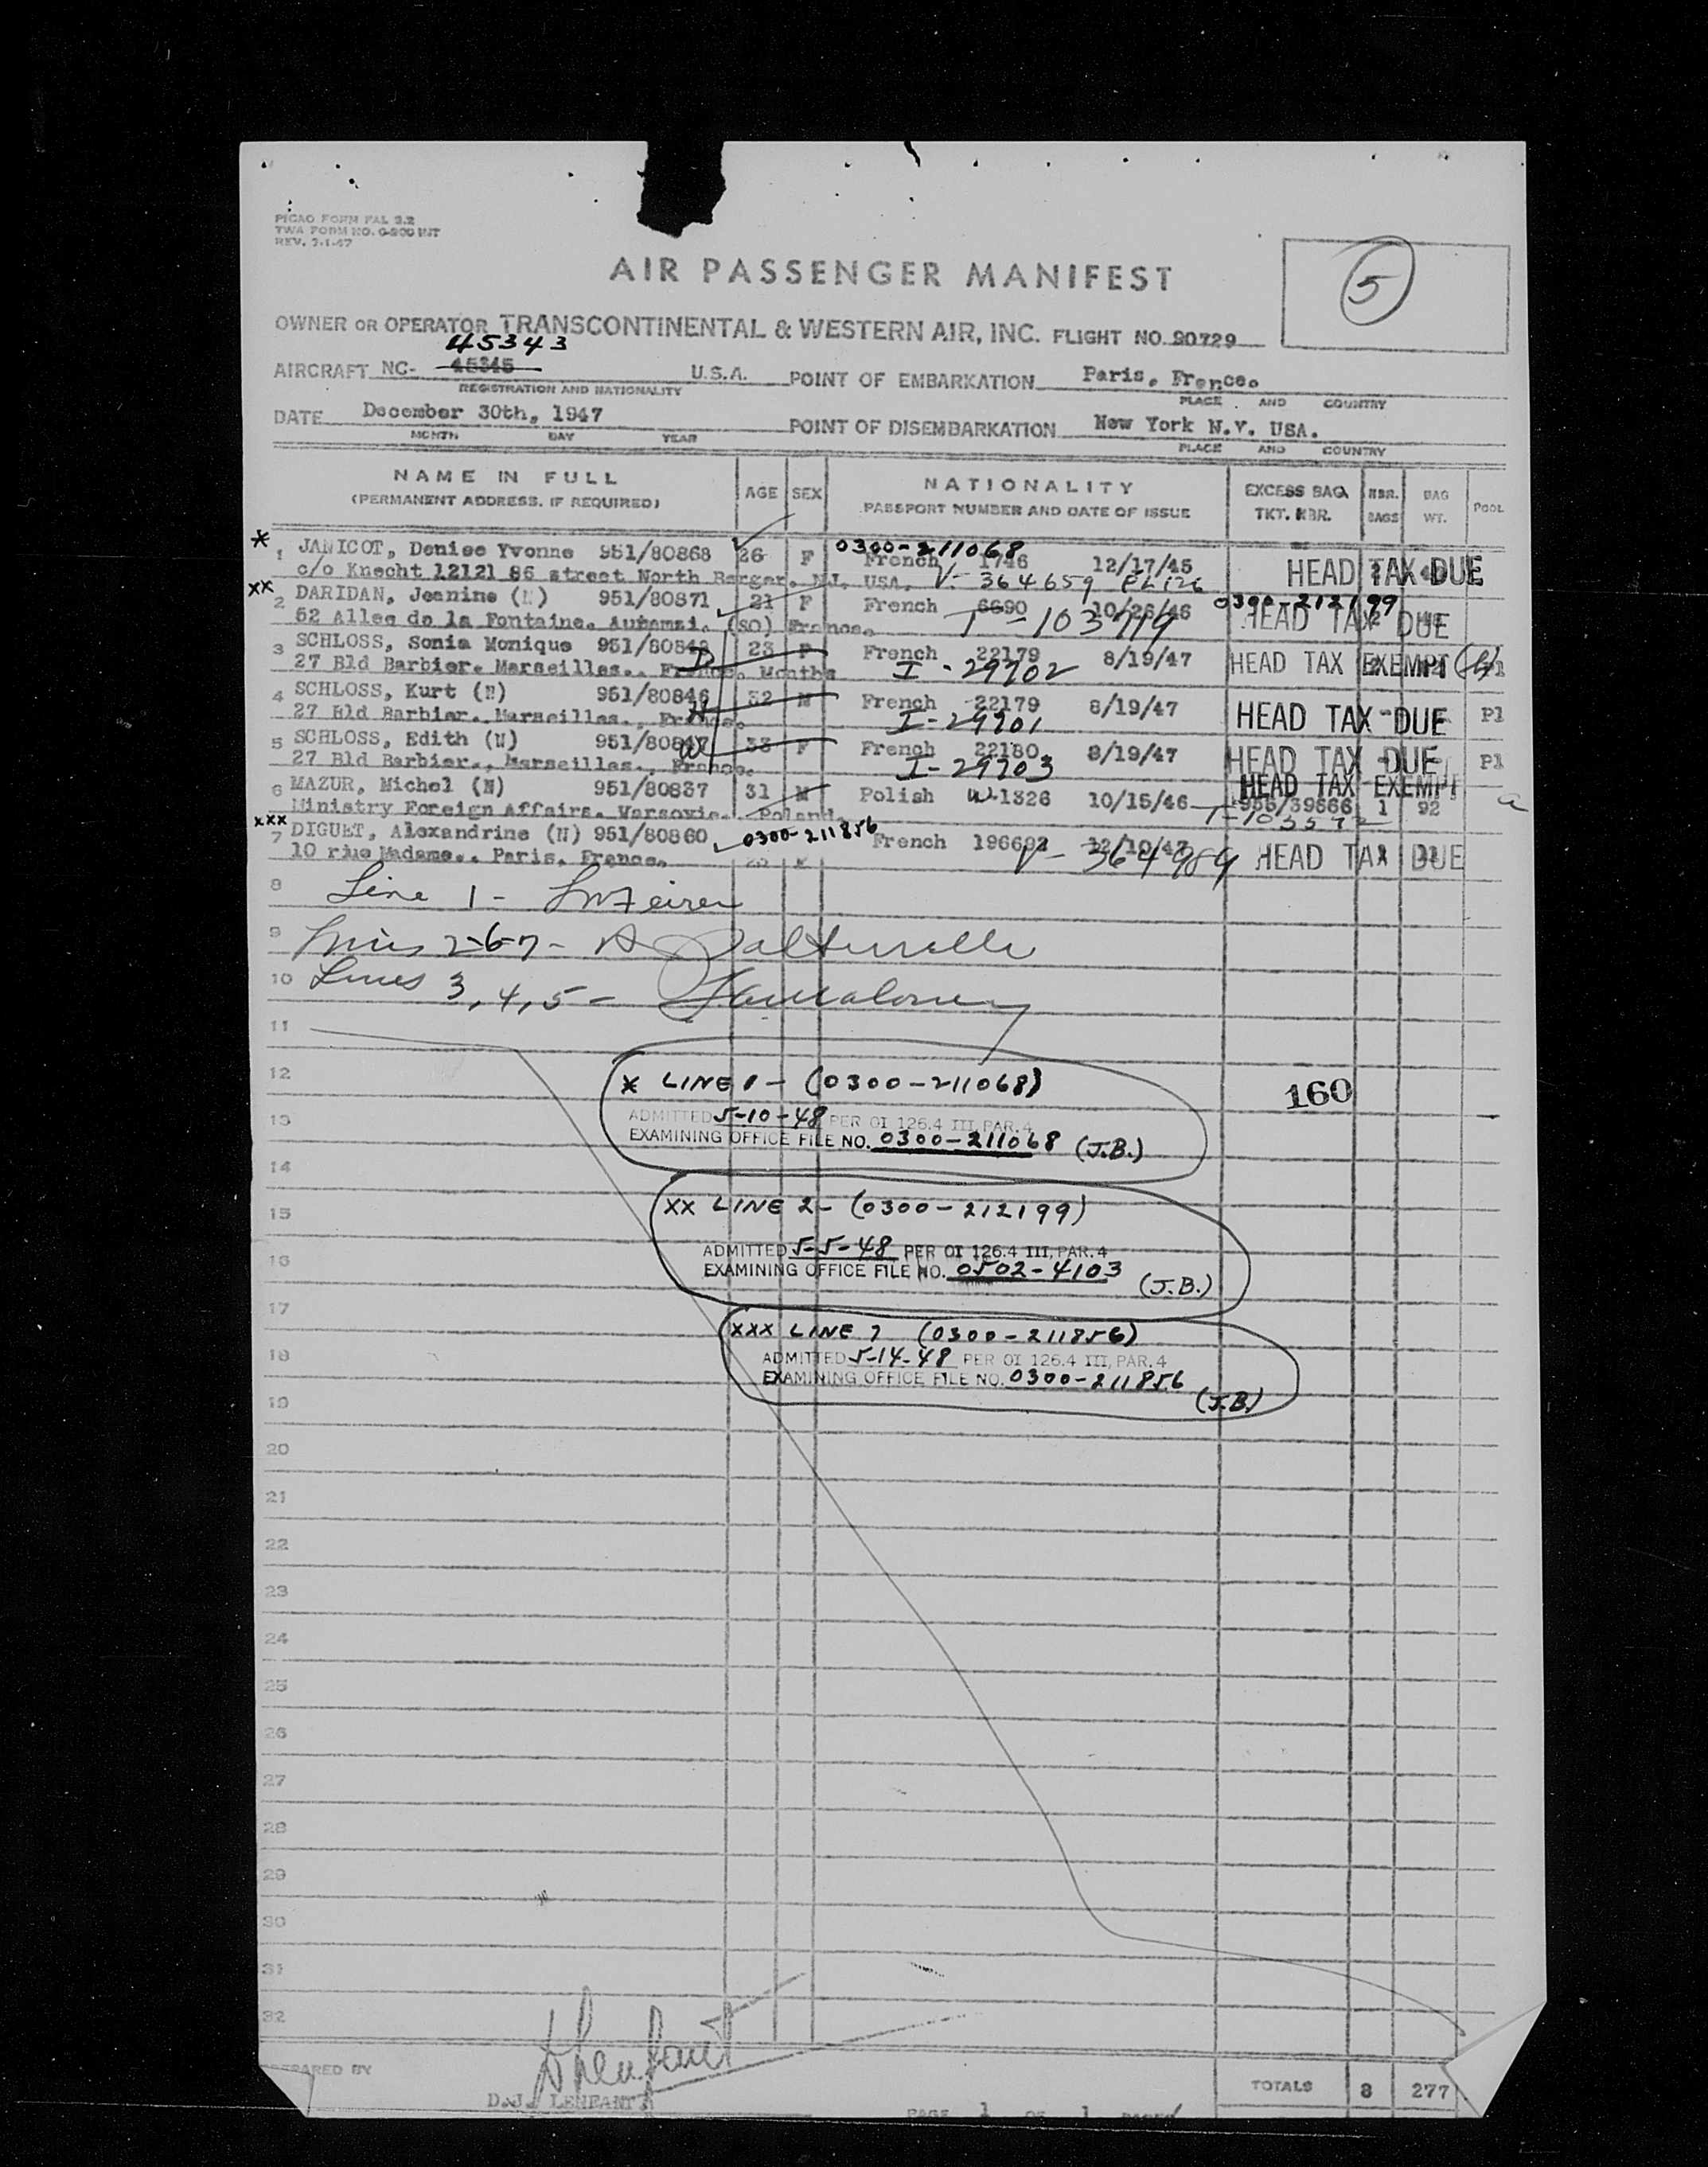 PICAO FORM FAL 2.2
TWA FORM NO. O-800 INT
REV. 7-1-47
AIR PASSENGER MANIFEST
5
OWNER OR OPERATOR TRANSCONTINENTAL & WESTERN AIR, INC. FLIGHT NO. 90729
45343
AIRCRAFT NC- 45345 U.S.A. POINT OF EMBARKATION Paris, France.
REGISTRATION AND NATIONALITY PLACE AND COUNTRY
DATE December 30th, 1947 POINT OF DISEMBARKATION New York N.Y. USA.
MONTH DAY YEAR PLACE AND COUNTRY
NAME IN FULL AGE SEX NATIONALITY EXCESS BAG. NBR. BAG POOL
(PERMANENT ADDRESS, IF REQUIRED) PASSPORT NUMBER AND DATE OF ISSUE TKT. NBR. BAGS WT.
0300-211068
* 1 JANICOT, Denise Yvonne 951/80868 26 F French 1746 12/17/45 HEAD TAX DUE
c/o Knecht 12121 86 street North Bergen. NJ. USA. V- 364659 PL126
xx 2 DARIDAN, Jeanine (N) 951/80871 21 F French 6690 10/26/46 0300-212199 HEAD TAX DUE
52 Allee de la Fontaine. (SO) France. T-103779
3 SCHLOSS, Sonia Monique 951/80848 23 F French 22179 8/19/47 HEAD TAX EXEMPT
27 Bld Barbier. Marseilles., France. Months I-29702
4 SCHLOSS, Kurt (N) 951/80846 32 M French 22179 8/19/47 HEAD TAX DUE P1
27 Bld Barbier., Marseilles., France. H I-29701
5 SCHLOSS, Edith (N) 951/80847 33 F French 22180 8/19/47 HEAD TAX DUE P1
27 Bld Barbier., Marseilles., France. W I-29703
HEAD TAX EXEMPT
6 MAZUR, Michel (N) 951/80837 31 M Polish 1326 10/15/46 956/39666 1 92
Ministry Foreign Affairs. Varsovie. Poland.
xxx 7 DIGUET, Alexandrine (N) 951/80860 0300-211856 French 196692 12/10/47 HEAD TAX DUE
10 rue Madame., Paris, France. V-364989
8 Line 1 -
9 Lines 2-6-7-
10 Lines 3, 4, 5 -
11
12 * LINE 1 - (0300-211068) 160
13 ADMITTED 5-10-48 PER OI 126.4 III, PAR. 4
EXAMINING OFFICE FILE NO. 0300-211068 (J.B.)
14
15 XX LINE 2- (0300-212199)
16 ADMITTED 5-5-48 PER OI 126.4 III, PAR. 4
EXAMINING OFFICE FILE NO. 0502-4103 (J.B.)
17
XXX LINE 7 (0300-211856)
18 ADMITTED 5-14-48 PER OI 126.4 III, PAR. 4
EXAMINING OFFICE FILE NO. 0300-211856
19 (J.B.)
20
21
22
23
24
25
26
27
28
29
30
31
32
PREPARED BY
D.J. LENFANT
TOTALS 8 277
PAGE 1 OF 1 PAGES